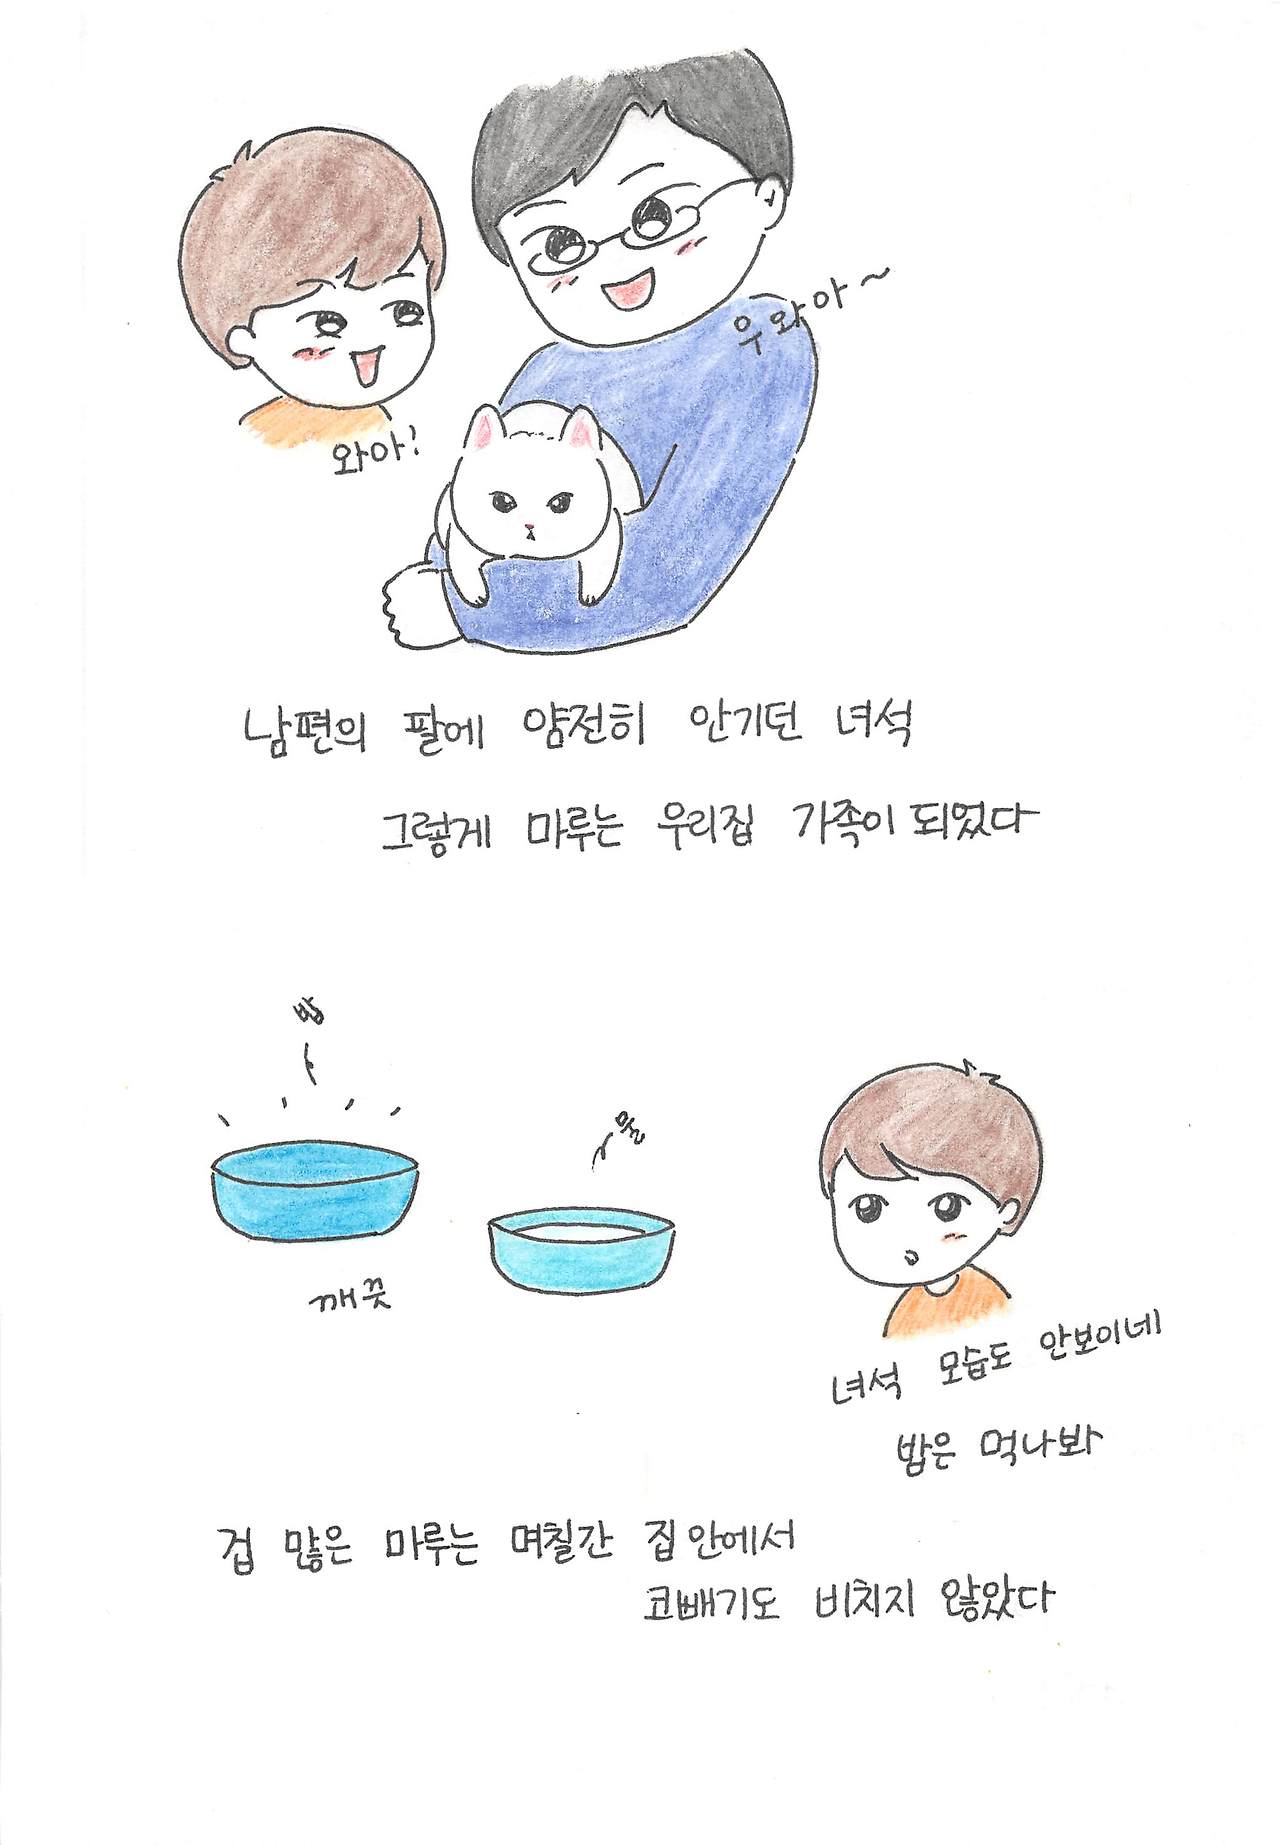 우와아~
와아!
남편의 팔에 얌전히 안기던 녀석
그렇게 마루는 우리집 가족이 되었다
밥
물
깨끗
녀석 모습도 안보이네
밥은 먹나봐
겁 많은 마루는 며칠간 집안에서
코빼기도 비치지 않았다